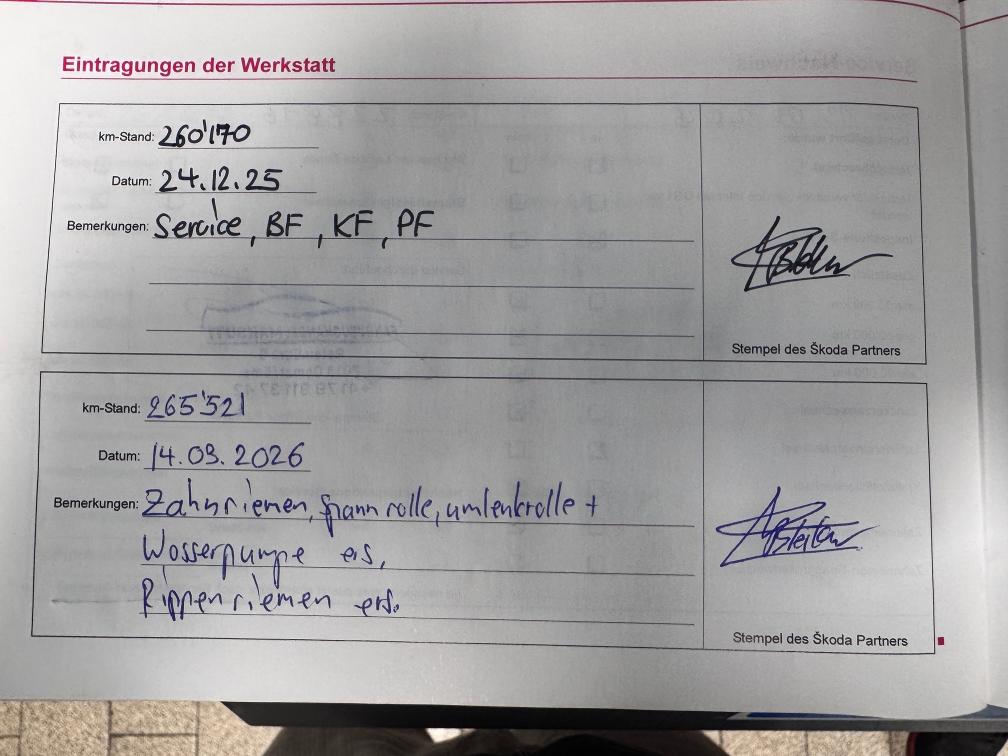 Eintragungen der Werkstatt
km-Stand: 260'170
Datum: 24.12.25
Bemerkungen: Service, BF, KF, PF
Stempel des Škoda Partners
km-Stand: 265'521
Datum: 14.03.2026
Bemerkungen: Zahnriemen, spannrolle, umlenkrolle +
Wasserpumpe ers,
Rippenriemen ers.
Stempel des Škoda Partners